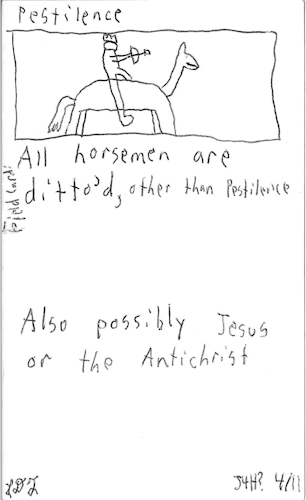 Pestilence
All horsemen are
ditto'd, other than Pestilence
Field Card:
Also possibly Jesus
or the Antichrist
J4H? 4/11